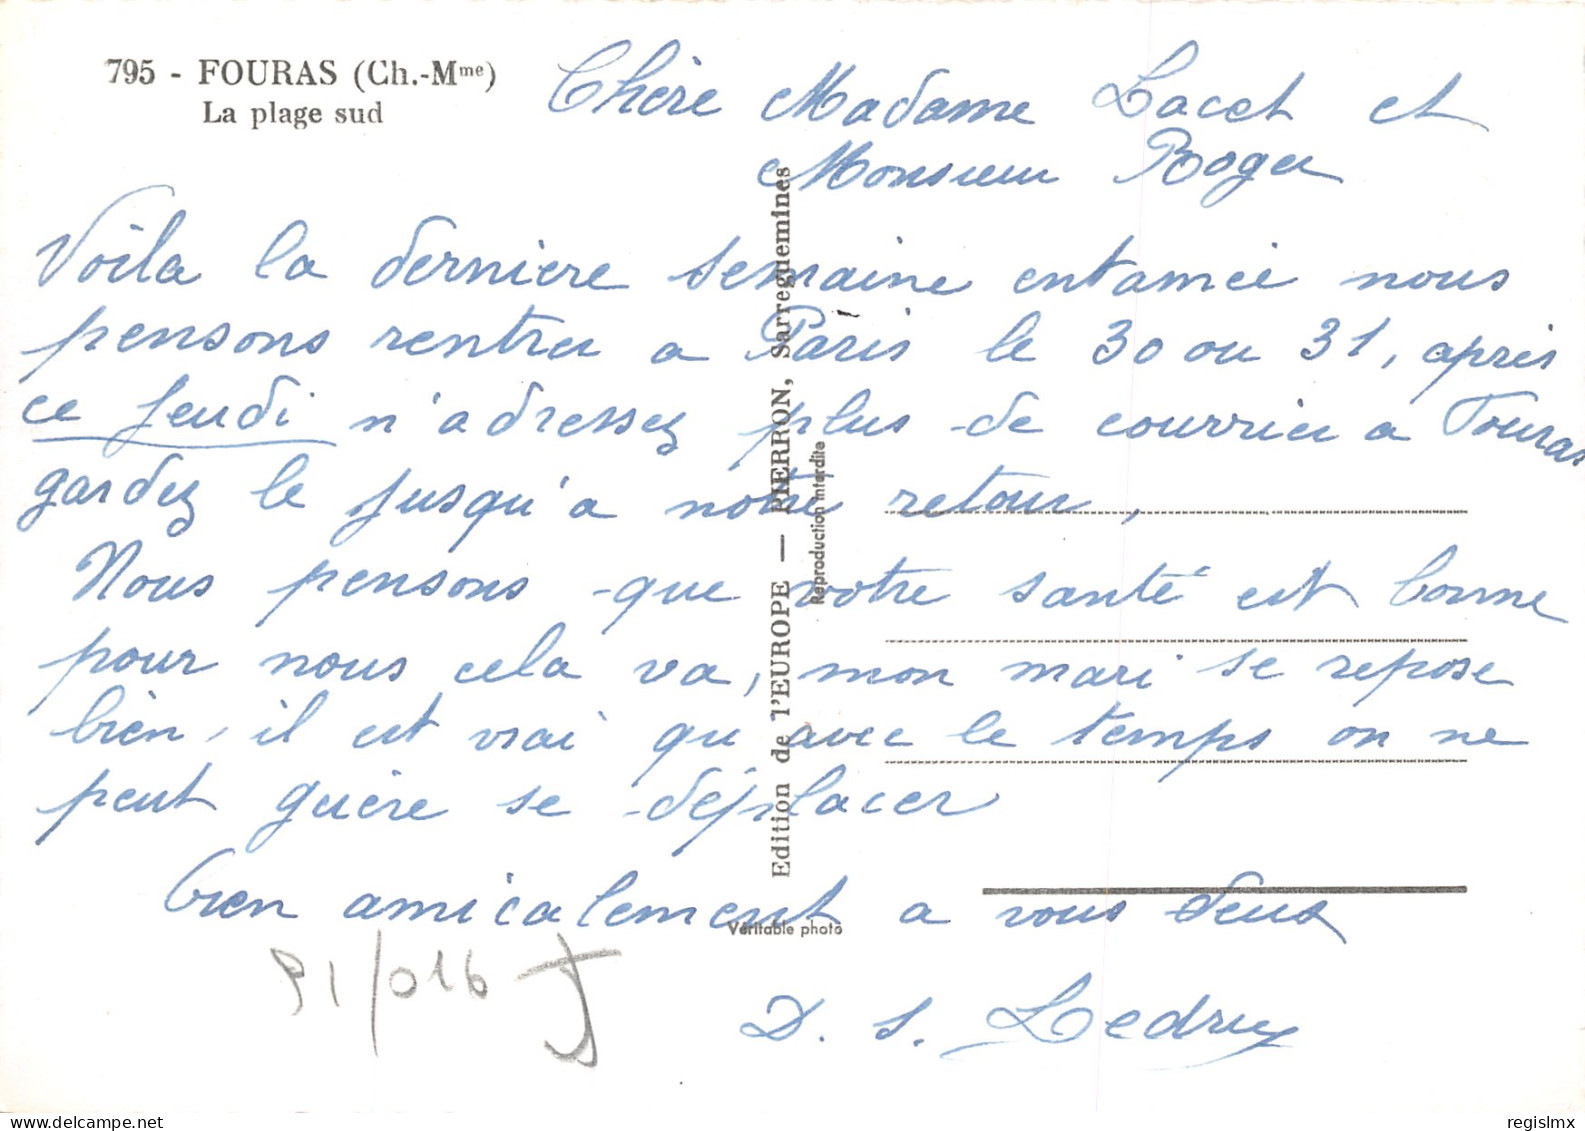 795 - FOURAS (Ch.-Mme)
La plage sud
Chère Madame Lacet et
Monsieur Roger
Voila la dernière semaine entamée nous
pensons rentrer a Paris le 30 ou 31, après
ce jeudi n'adressez plus de courrier a Fouras
gardez le jusqu'a notre retour,
Nous pensons que votre santé est bonne
pour nous cela va, mon mari se repose
bien, il est vrai qu'avec le temps on ne
peut guère se déplacer
bien amicalement a vous deux
D. S. Ledrux
Edition de l'EUROPE — PIERRON, Sarreguemines
Reproduction interdite
Véritable photo
91/016
delcampe.net
regislmx